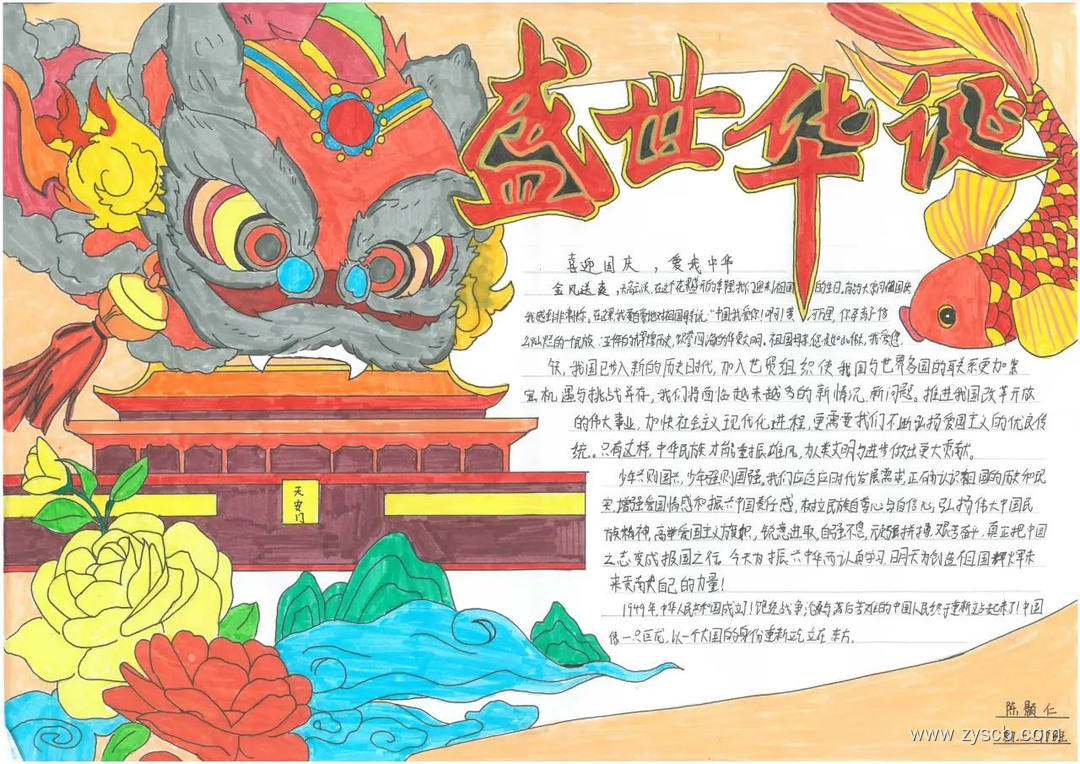 盛世华诞
喜迎国庆，爱我中华
金风送爽，
我感到非常
祖国
我爱您
我国已步入新的历史时代，加入世贸组织使我国与世界各国的联系更加紧
机遇与挑战并存，我们将面临越来越多的新情况、新问题。推进我国改革开放
的伟大事业，加快社会主义现代化进程，更需要我们不断弘扬爱国主义的优良传
统。只有这样，中华民族才能重振雄风，为人类文明与进步做出更大贡献。
少年兴则国兴，少年强则国强。我们应适应时代发展需求，正确认识祖国的历史和现
实，增强爱国情感和振兴中国责任感，树立民族自尊心与自信心；弘扬伟大中国民
族精神，高举爱国主义旗帜，锐意进取，自强不息，顽强拼搏，艰苦奋斗，真正把中国
之志变成报国之行。今天为振兴中华而认真学习，明天为创造祖国辉煌未
来贡献自己的力量！
1949年，中华人民共和国成立了！饱经战争沧桑与落后苦难的中国人民终于重新站起来了！中国
像一只巨龙，以一个大国的身份重新屹立在东方。
天安门
陈颢仁
www.zyscb.com